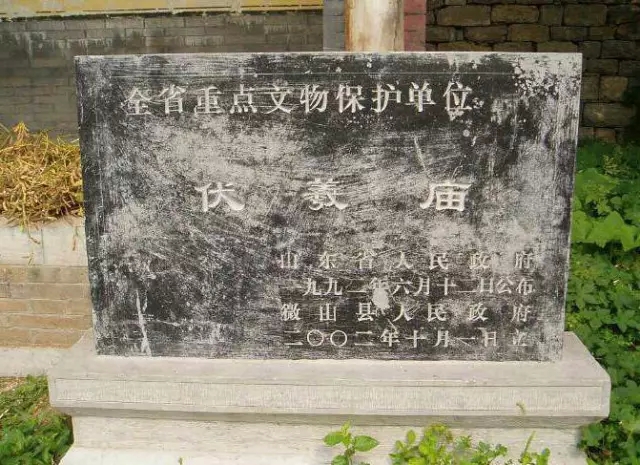 全省重点文物保护单位
伏羲庙
山东省人民政府
一九九二年六月十二日公布
微山县人民政府
二〇〇二年十月一日立